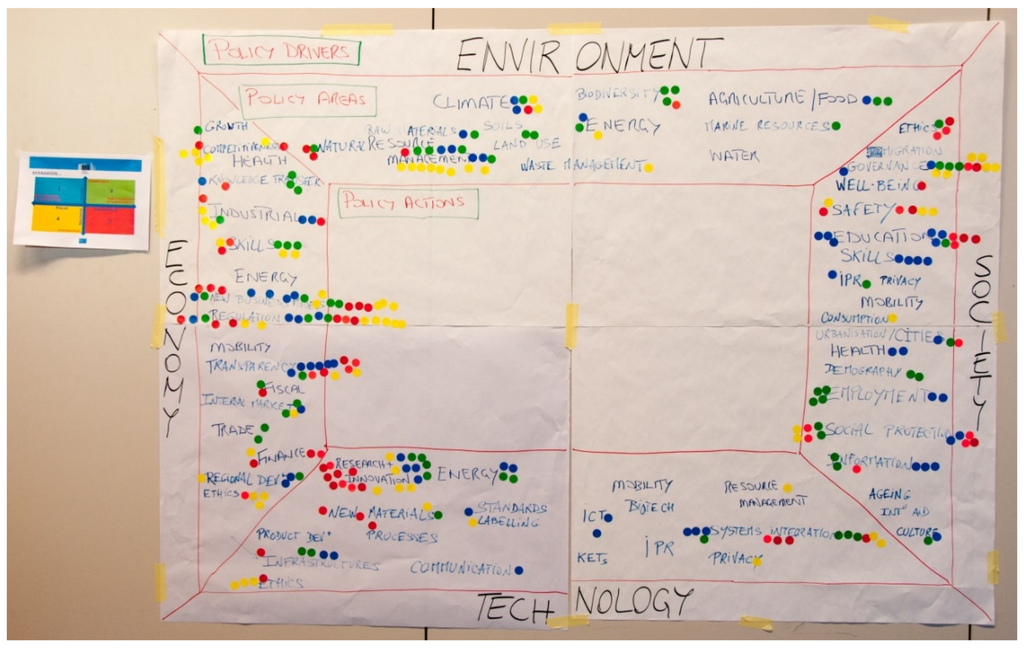 POLICY DRIVERS
ENVIRONMENT
POLICY AREAS
CLIMATE
BIODIVERSITY
AGRICULTURE/FOOD
GROWTH
COMPETITIVENESS
HEALTH
NATURAL RESOURCE
MANAGEMENT
RAW MATERIALS
SOILS
LAND USE
ENERGY
WASTE MANAGEMENT
MARINE RESOURCES
WATER
ETHICS
MIGRATION
GOVERNANCE
KNOWLEDGE TRANSFER
INDUSTRIAL
SKILLS
ENERGY
NEW BUSINESS
REGULATION
MOBILITY
TRANSPARENCY
FISCAL
INTERAL MARKET
TRADE
FINANCE
REGIONAL DEV'
ETHICS
ECONOMY
POLICY ACTIONS
WELL-BEING
SAFETY
EDUCATION
SKILLS
IPR
PRIVACY
MOBILITY
CONSUMPTION
URBANISATION/CITIES
HEALTH
DEMOGRAPHY
EMPLOYMENT
SOCIAL PROTECTION
INFORMATION
AGEING
INT' AID
CULTURE
SOCIETY
RESEARCH +
INNOVATION
ENERGY
NEW MATERIALS
PROCESSES
STANDARDS
LABELLING
PRODUCT DEV'
INFRASTRUCTURES
COMMUNICATION
ETHICS
MOBILITY
BIOTECH
RESOURCE
MANAGEMENT
ICT
SYSTEMS INTEGRATION
KETs
IPR
PRIVACY
TECHNOLOGY